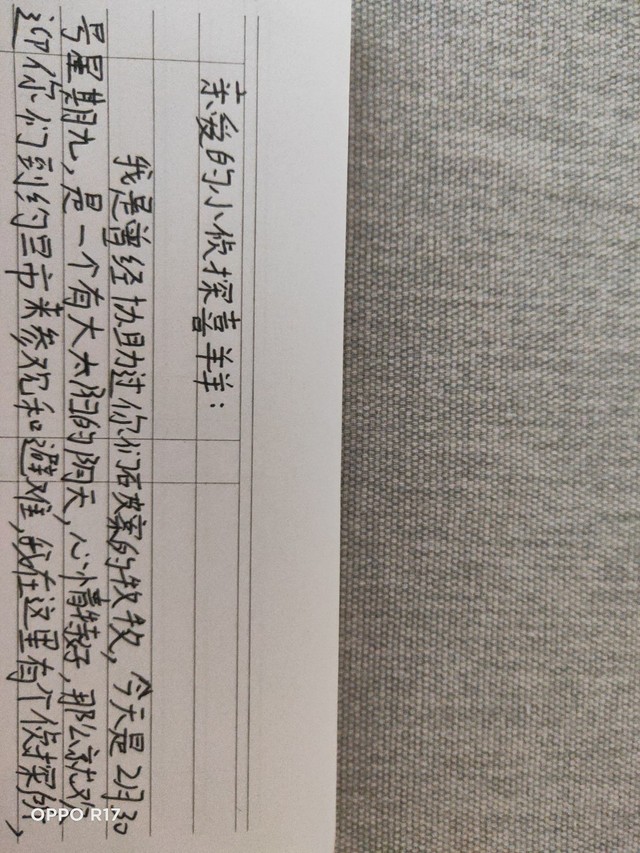 亲爱的小侦探喜羊羊：
我是曾经协助过你们破案的牧牧，今天是2月30
号星期九，是一个有大太阳的阴天，心情特好，那么就欢
迎你们到约旦市来参观和避难，我在这里有个侦探所，
OPPO R17